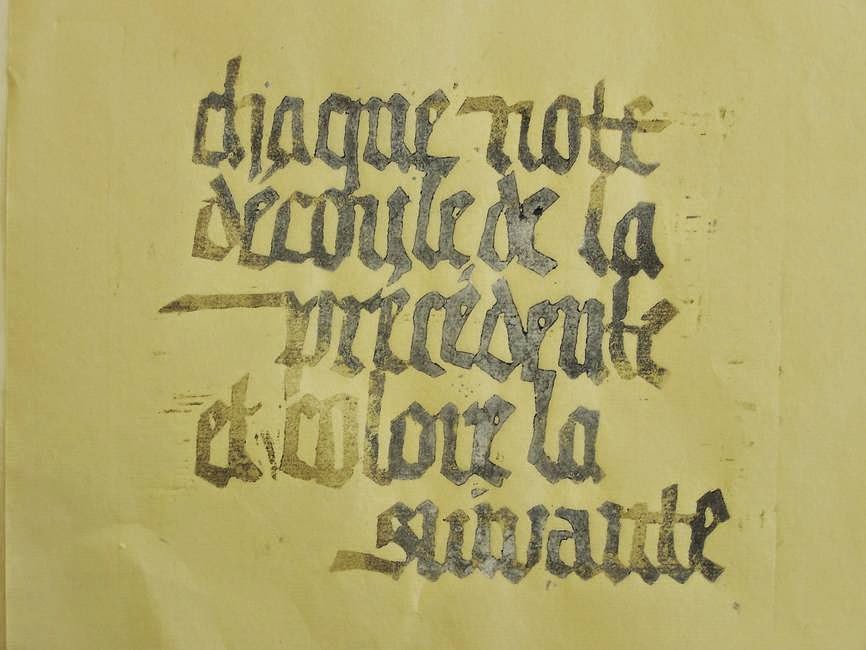 chaque note
découle de la
précédente
et colore la
suivante